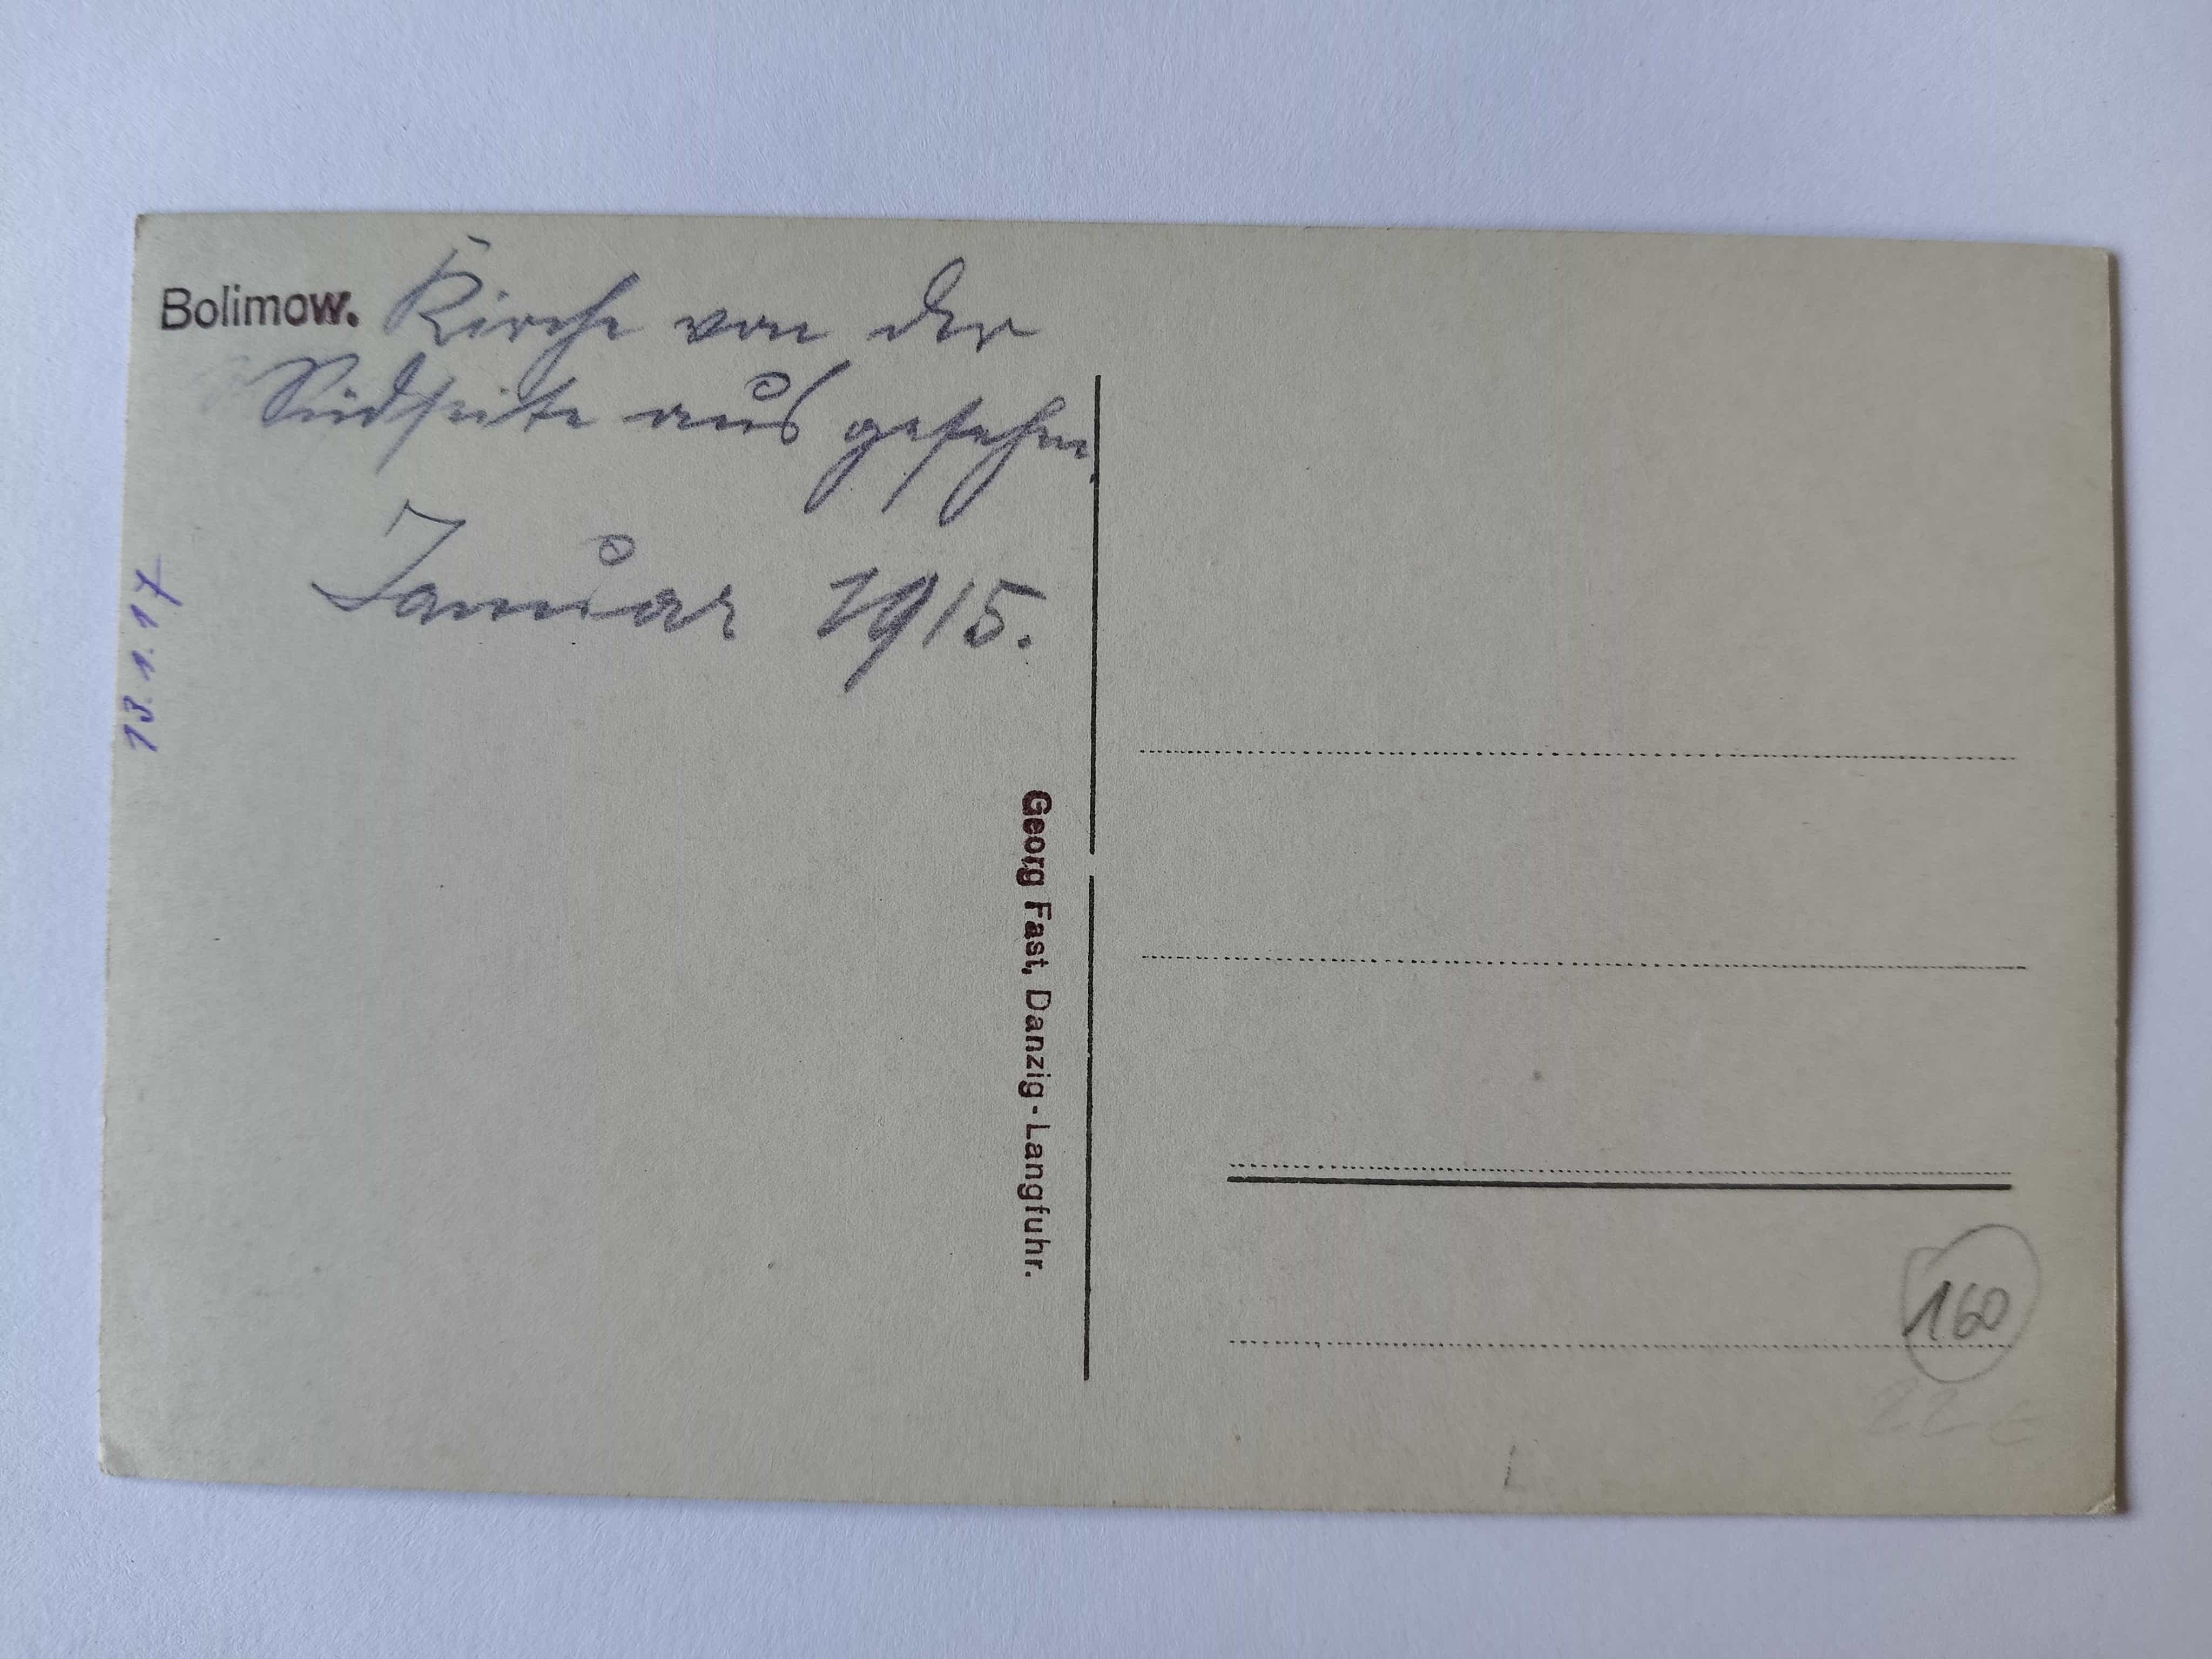 Bolimow. Kirche von der
Südseite aus gesehen
Januar 1915.
13.1.17
Georg Fast, Danzig-Langfuhr.
160
22 €